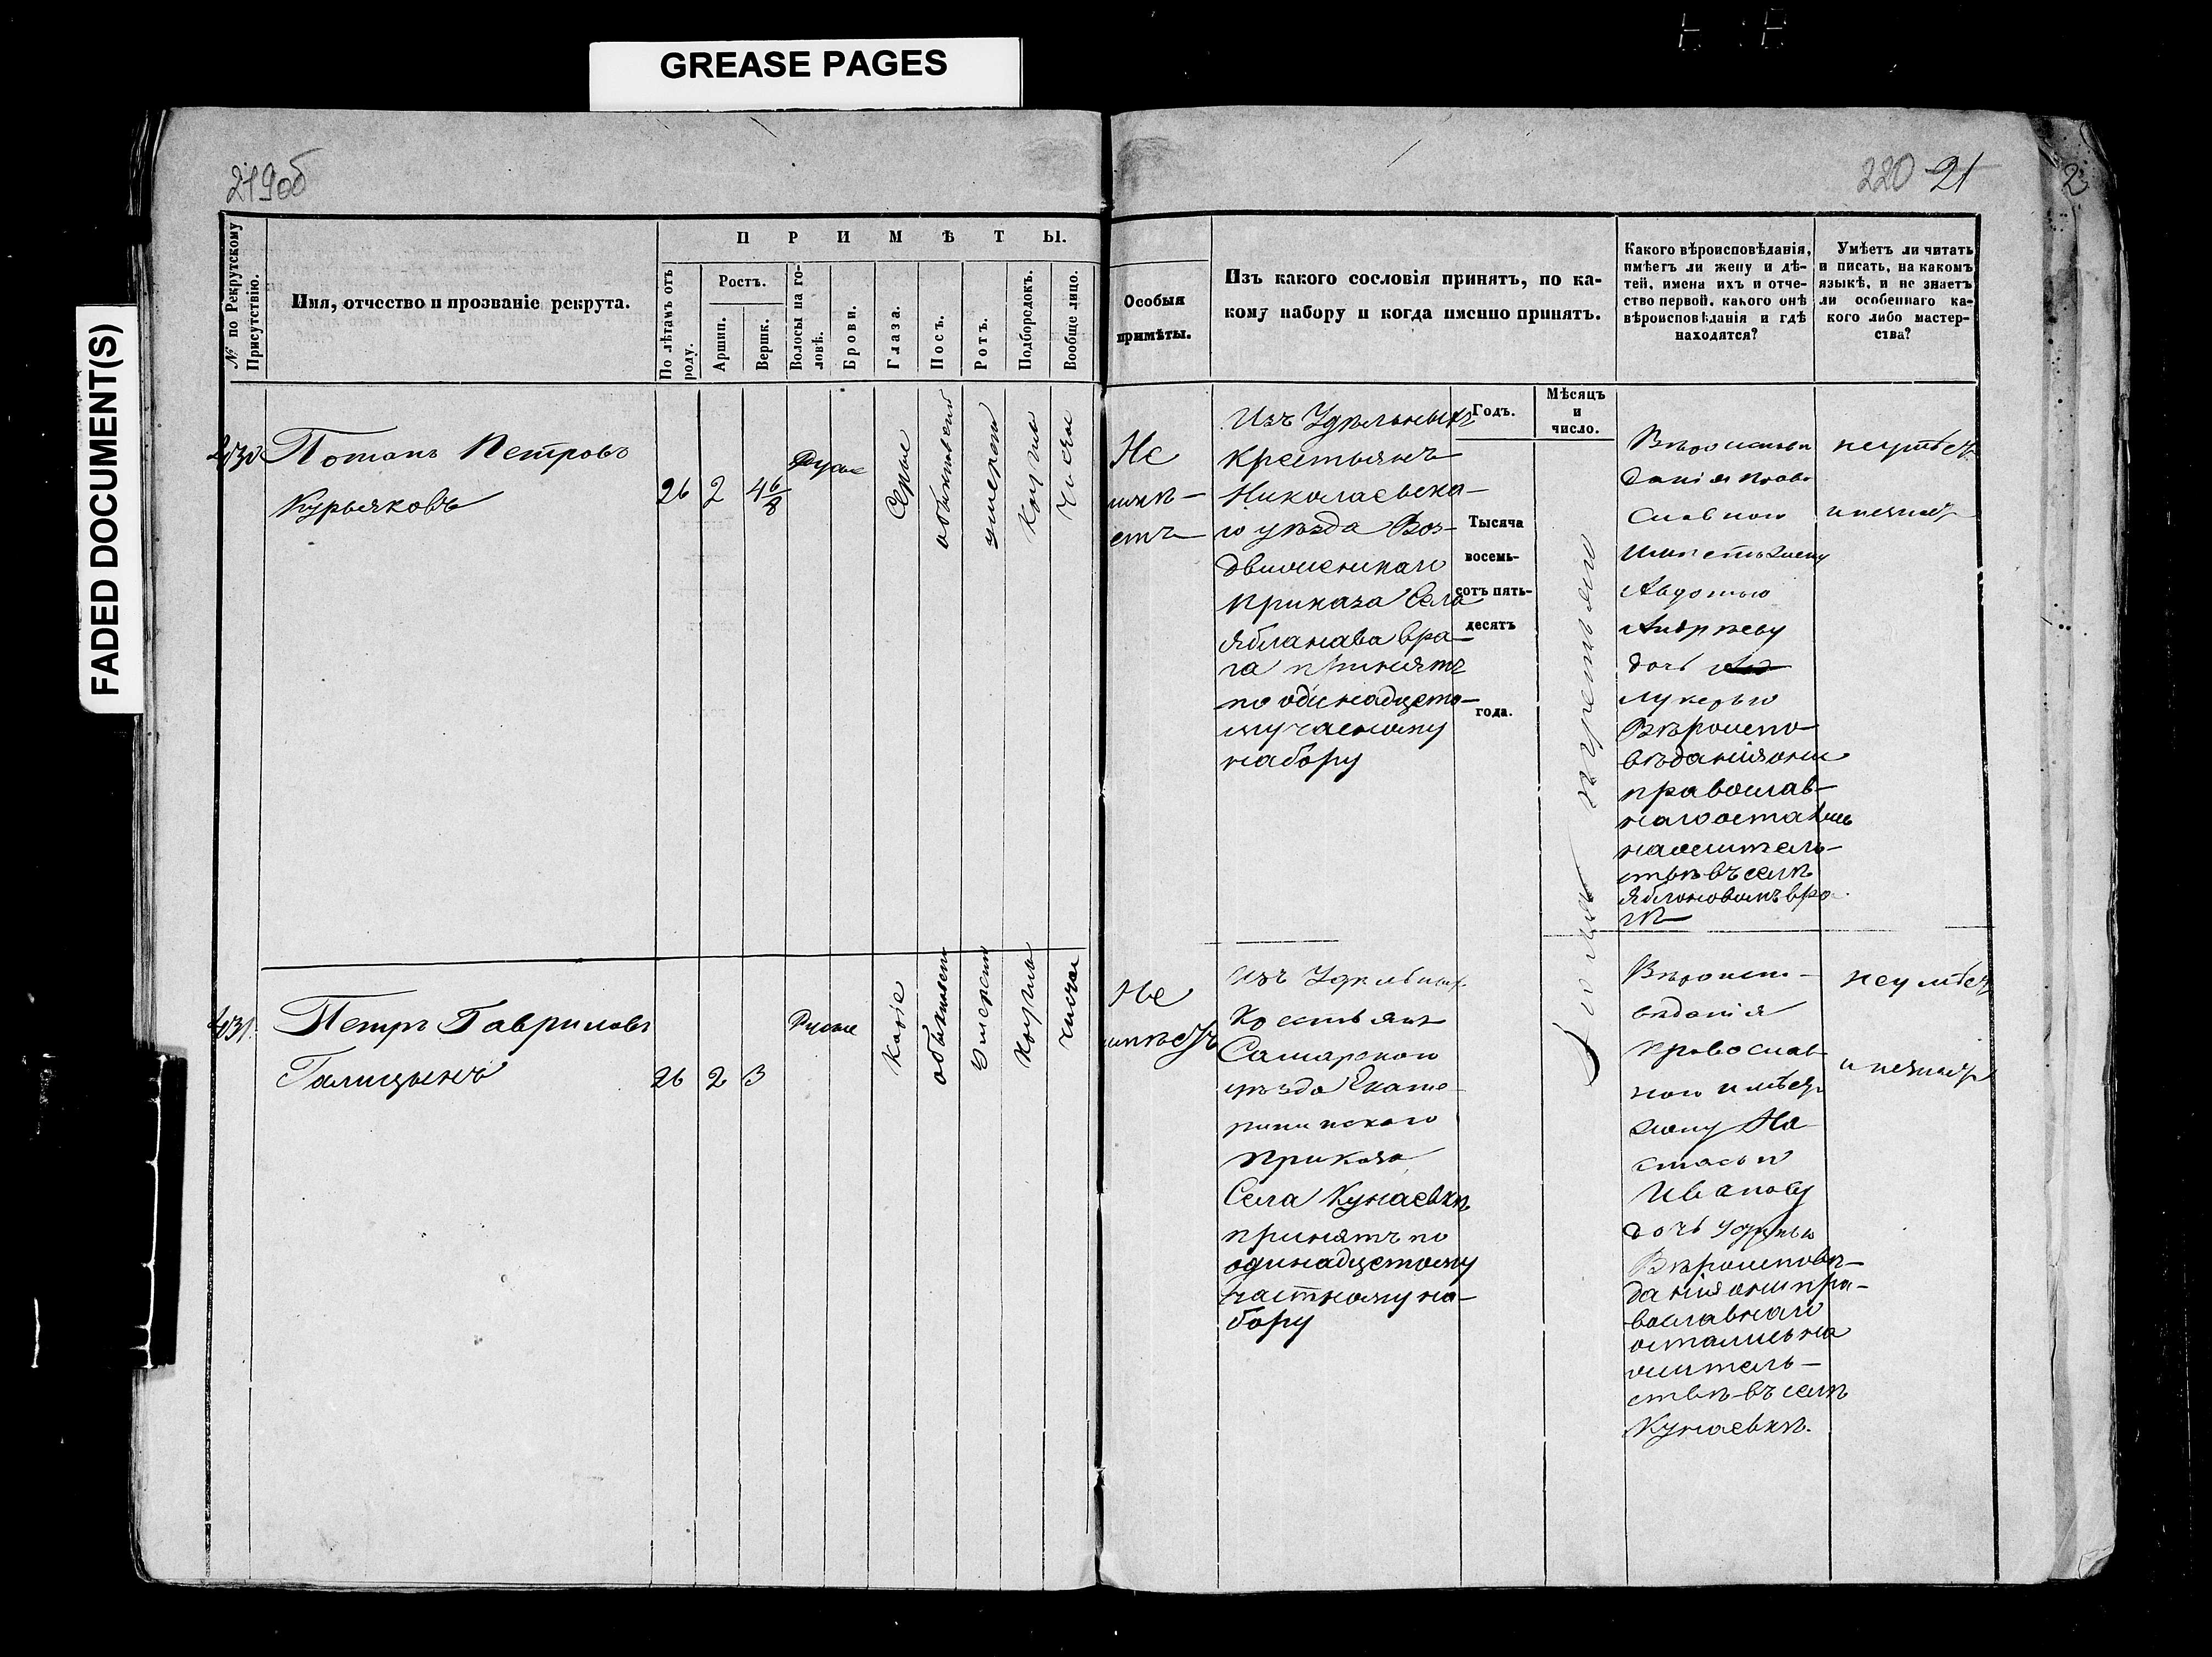 GREASE PAGES
FADED DOCUMENT(S)
219об
220 21
2
№ по Рекрутскому Присутствію.
Имя, отчество и прозваніе рекрута.
ПРИМѢТЫ.
По лѣтамъ отъ роду.
Ростъ.
Аршин.
Вершк.
Волосы на головѣ.
Брови.
Глаза.
Носъ.
Ротъ.
Подбородокъ.
Вообще лицо.
Особыя
примѣты.
Изъ какого сословія принятъ, по ка-
кому набору и когда именно принятъ.
Какого вѣроисповѣданія,
имѣетъ ли жену и дѣ-
тей, имена ихъ и отче-
ство первой, какого онѣ
вѣроисповѣданія и гдѣ
находятся?
Умѣетъ ли читать
и писать, на какомъ
языкѣ, и не знаетъ
ли особеннаго ка-
кого либо мастер-
ства?
Годъ.
Мѣсяцъ
и
число.
Тысяча
восемь-
сотъ пять-
десятъ
года.
Потапъ Петровъ
Курьяковъ
26 2 4 6/8
Русые
Серые
обыкновеный
умереный
Круглый
Чистое
Не
имѣ-
етъ
Изъ Удѣльныхъ
крестьянъ
Николаевска-
го уѣзда Воз-
движенскаго
приказа Села
Яблонава вра-
га принятъ
по одинадцето-
му часному
набору
Вѣроисповѣ
данія право
славного
имѣетъ жену
Авдотью
Андрѣеву
дочь
лукерью
Вѣроиспо-
вѣданія они
православ-
наго остались
нажитель-
ствѣ въ селѣ
Яблоновомъ вра-
гѣ
неумѣетъ
и незнаетъ
431
Петръ Гавриловъ
Галицынъ
26 2 3
Русые
Каріе
обыкновен
Умерен
Круглы
чистое
Не
имѣетъ
Изъ Удѣльныхъ
Крестьянъ
Самарскаго
уѣзда Екате-
рининскаго
Приказа
Села Кунаевкѣ
принятъ по
одинадцетому
частному на-
бору
Вѣроиспо-
вѣданія
православ
ного имѣетъ
жону На
стасью
Иванову
дочь
Вѣроисповѣ-
данія они пра-
вославнаго
остались на
жітель-
ствѣ въ селѣ
Кунаевкѣ.
неумѣетъ
и незнаетъ